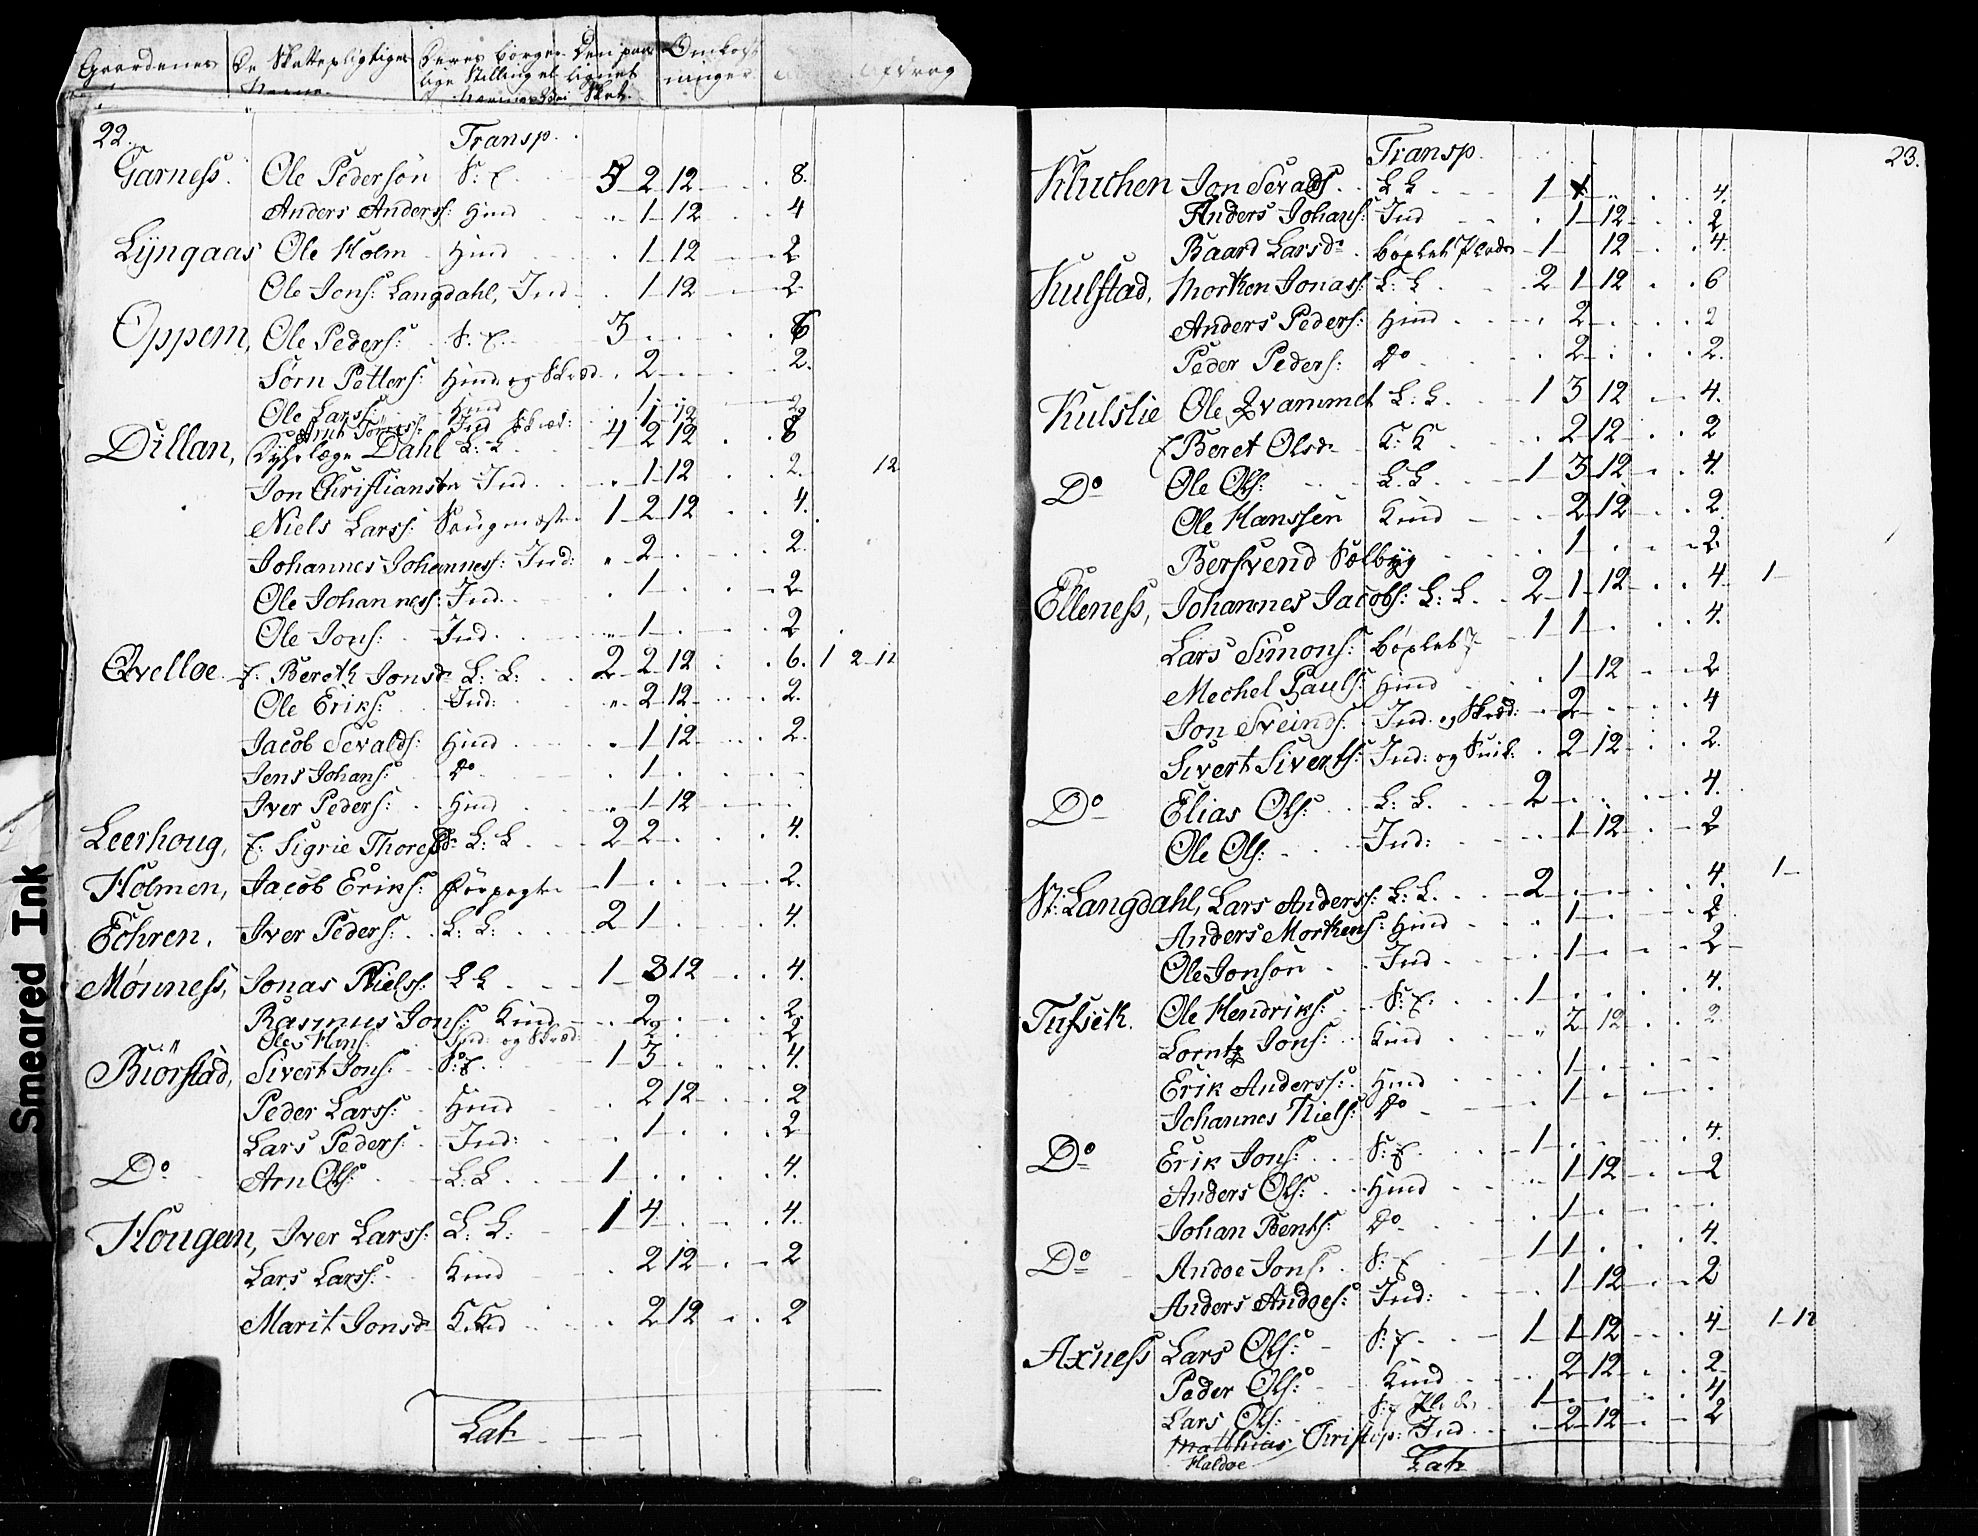 Gaardenes De Skattepligtiges Deres borger- Den paa- Omkost-
Navne lige Stilling el. lignet ninger afdrag
Nærings Vei Skat.
22. Transp.
Garness. Ole Pedersøn S: E 5 2 12 8.
Anders Anderss: Hmd 1 12 4
Lÿngaas Ole Holm Hmd 1 12 2
Ole Jons: Langdahl, Ind 1 12 2
Oppem, Ole Peders: S. E. 3 6
Sørn Petters: Hmd og Skræd 2 2.
Ole Larss: Hmd 1 2
Arnt Tørriss: Ind Skræd: 1 12
Dillan, Dahl L: L 4 2 12 8
Jon Christiansen Ind 1 12 2. 12
Niels Larss: Saugmæst 1 2 12 4.
Johannes Johanness: Ind: 2 2
Ole Johanness: Ind. 1 2
Ole Jons: Ind. 1 2
Qvelloe E. Bereth Jonsd L: L: 2 2 12 6. 1 2 12
Ole Eriks: Ind: 2 12 2.
Jacob Sevalds: Hmd 1 12 2.
Jens Johans: Do 1
Iver Peders: Hmd 1 12
Leerhoug, E. Sigrie Thoresd: L: L 2 2 4.
Holmen, Jacob Eriks: Forpagt 1 2.
Echren, Iver Peders: L: L: 2 1 4.
Mønness, Jonas Niels: L L 1 3 12 4.
Rasmus Jons: Kmd 2 2
Ole Ind: og Skræd: 2 2
Biörstad, Sivert Jons: S: E 1 3 4.
Peder Larss: Hmd 2 12 2
Lars Peders: Ind: 1 2
Do Arn Ols: L: L 1 4.
Hougen, Iver Larss: L: L: 1 4 4.
Lars Larss: Kmd 2 12 2
Marit Jonsd Kmd 2 12 2
Lat
23.
Transp.
Kluchen Jon Sevalds L L 1 4.
Anders Johans: Ind 1 12 2
Baard Larsd bøxlet Plads 1 12 4.
Kulstad, Morken Jonas: L: L 2 1 12 6
Anders Peders: Hmd 2 2
Peder Peders: Do 2 2.
Kulslie Ole Qvammet L: L 1 3 12 4.
E Beret Olsd K: K 2 12 2
Do Ole Ols: L. L. 1 3 12 4.
Ole Hanssen Kmd 2 12 2.
Bersvend Sælbyg 1 2
Elleness, Johannes Jacobs: L: L. 2 1 12 4 1
Lars Simons: bøxlet P 1 1 4.
Mechel Pauls: Hmd 1 12 2
Jon Sveinds: Ind. og Skræd: 2 4
Sivert Siverts: Ind: og Snik: 2 12 2.
Do Elias Ols: L: L. 2 4.
Ole Ols: Ind: 1 12 2
St: Langdahl, Lars Anderss: L: L. 2 4. 1
Anders Morkens: Hmd 1 2
Ole Jonson Ind 1 2
Tufseck. Ole Hendriks: S: E. 1 4.
Lorntz Jons: Kmd 2 12 2.
Erik Anderss: Hmd 1
Johannes Niels: Do 1
Do Erik Jons: S: E. 1 4.
Anders Ols: Hmd 1 12 2
Johan Bents: Do 1
Do Andoe Jons: S: E 1 1 4.
Anders Andoes: Ind: 1 12 2
Axness Lars Ols: S: E. 1 1 12 4 1 12
Peder Ols: Kmd 2 12 2
Lars Ols: 1 4
Matthias Christop: Ind 2 12 2
Haldoe
Lat
Smeared Ink